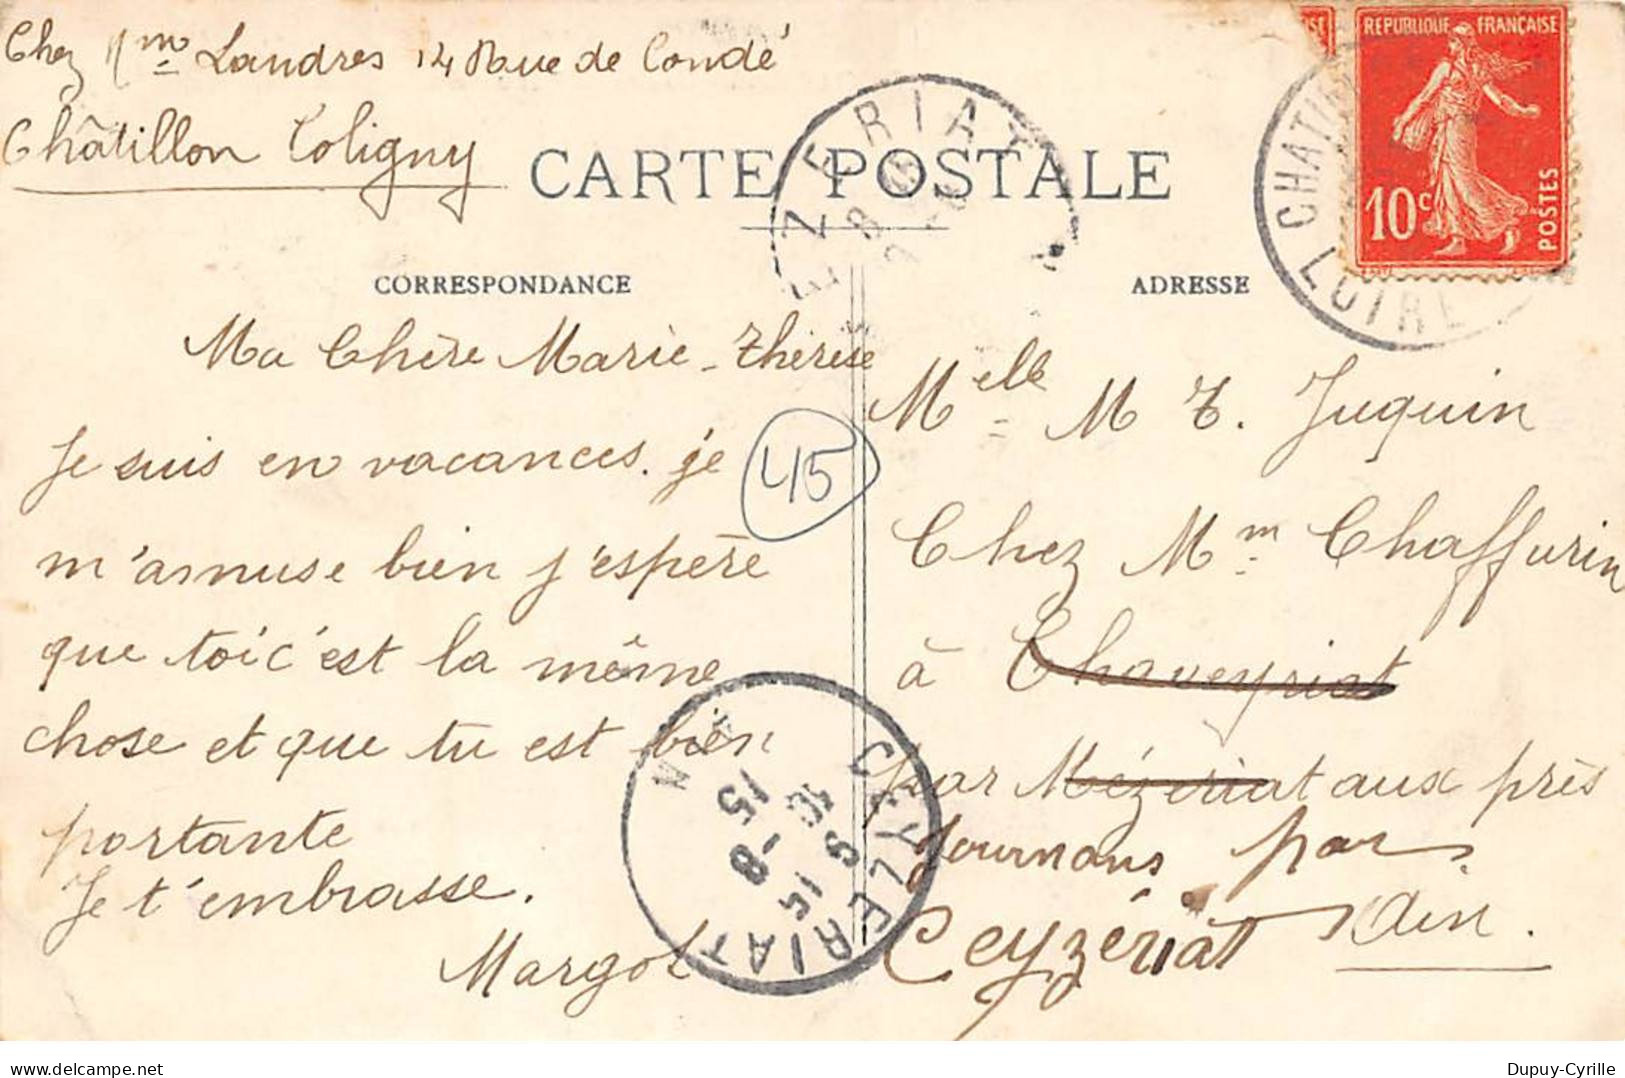 Chez Mme Landres 14 Rue de Condé
Châtillon Coligny
CARTE POSTALE
CORRESPONDANCE
Ma Chère Marie-Thérèse
Je suis en vacances. je
m'amuse bien j'espère
que toi c'est la même
chose et que tu est bien
portante
Je t'embrasse.
Margot
45
ADRESSE
Melle M T. Juquin
Chez Mm Chaffurin
à Chaveyriat
par Mézériat aux près
Journans par
Ceyzériat Ain.
REPUBLIQUE FRANÇAISE
10c
POSTES
LOIRE
CEYZERIAT
AIN
15
8-15
Dupuy-Cyrille